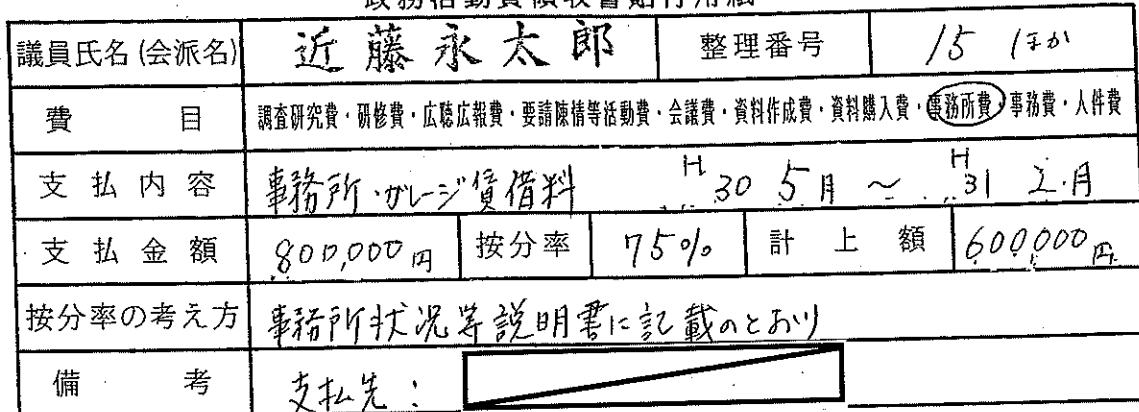 政務活動費領収書貼付用紙
議員氏名(会派名) 近藤永太郎 整理番号 15 ほか
費目 調査研究費・研修費・広聴広報費・要請陳情等活動費・会議費・資料作成費・資料購入費・事務所費・事務費・人件費
支払内容 事務所・ガレージ賃借料 H30 5月 ~ H31 2月
支払金額 800,000円 按分率 75% 計上額 600,000円
按分率の考え方 事務所状況等説明書に記載のとおり
備考 支払先: